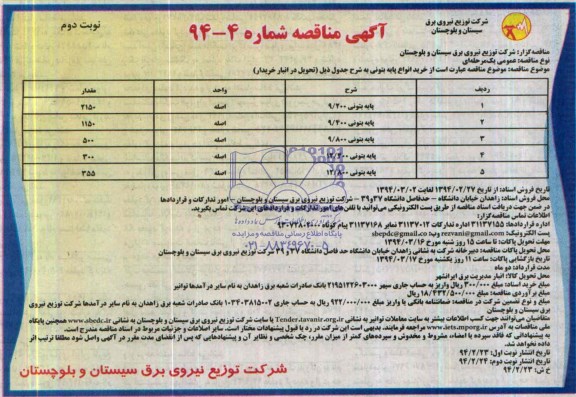 شرکت توزیع نیروی برق
سیستان و بلوچستان
آگهی مناقصه شماره ۴-۹۴
نوبت دوم
مناقصه‌گزار: شرکت توزیع نیروی برق سیستان و بلوچستان
نوع مناقصه: عمومی یک‌مرحله‌ای
موضوع مناقصه: موضوع مناقصه عبارت است از خرید انواع پایه بتونی به شرح جدول ذیل (تحویل در انبار خریدار)
ردیف شرح واحد مقدار
۱ پایه بتونی ۹/۲۰۰ اصله ۲۱۵۰
۲ پایه بتونی ۹/۴۰۰ اصله ۱۱۵۰
۳ پایه بتونی ۹/۸۰۰ اصله ۵۰۰
۴ پایه بتونی اصله ۳۰۰
۵ پایه بتونی ۱۲/۸۰۰ اصله ۳۵۵
تاریخ فروش اسناد: از تاریخ ۱۳۹۴/۰۲/۲۷ لغایت ۱۳۹۴/۰۳/۰۲
محل فروش اسناد: زاهدان خیابان دانشگاه – حدفاصل دانشگاه ۳۷ و ۳۹ – شرکت توزیع نیروی برق سیستان و بلوچستان – امور تدارکات و قراردادها
در ضمن جهت دریافت اسناد مناقصه از طریق پست الکترونیکی می‌توانید با تلفن‌های امور تدارکات و قراردادهای این شرکت تماس بگیرید.
اطلاعات تماس مناقصه‌گزار:
اداره قرارداد ۳۱۱۳۷۱۵۵ اداره تدارکات ۳۱۱۳۷۱۶۸ پیام کوتاه
پایگاه اطلاع رسانی مناقصه و مزایده
۰۲۱-۸۸۳۴۹۶۷۰-۵
مهلت تحویل پاکات: تا ساعت ۱۵ روز شنبه مورخ ۱۳۹۴/۰۳/۱۶
محل تحویل پاکات مناقصه: دبیرخانه شرکت به نشانی زاهدان خیابان دانشگاه حد فاصل دانشگاه ۳۷ و ۳۹ شرکت توزیع نیروی برق سیستان و بلوچستان
تاریخ بازگشایی پاکات: ساعت ۱۱ روز یکشنبه مورخ ۱۳۹۴/۰۳/۱۷
مدت قرارداد: دو ماه
محل تحویل کالا: انبار مدیریت برق ایرانشهر
مبلغ خرید اسناد: مبلغ ۳۰۰/۰۰۰ ریال واریز به حساب جاری سپهر بانک صادرات شعبه برق زاهدان به نام سایر درآمدها توانیر
مبلغ برآوردی مناقصه: مبلغ ۱۸/۴۳۲/۵۰۰/۰۰۰ ریال
مبلغ و نوع تضمین شرکت در مناقصه: ضمانتنامه بانکی یا واریز مبلغ ۹۲۲/۰۰۰/۰۰۰ ریال به حساب جاری ۰۱۰۳۴۰۳۸۱۵۰۰۲ بانک صادرات شعبه برق زاهدان به نام سایر درآمدها شرکت توزیع نیروی
برق سیستان و بلوچستان
متقاضیان می‌توانند جهت کسب اطلاعات بیشتر به سایت معاملات توانیر به نشانی Tender.tavanir.org.ir یا سایت شرکت توزیع نیروی برق سیستان و بلوچستان به نشانی www.abedc.ir همچنین پایگاه
ملی مناقصات به آدرس www.iets.mporg.ir مراجعه فرمایند. بدیهی است این شرکت در رد یا قبول پیشنهادات مختار است. سایر اصلاعات و جزئیات مربوط در اسناد مناقصه مندرج است.
به پیشنهاداتی که فاقد سپرده یا امضاء، مشروط و مخدوش و سپرده‌های کمتر از میزان مقرر، چک شخصی و نظایر آن و پیشنهادهایی که پس از انقضای مدت مقرر در آگهی واصل شود مطلقا ترتیب اثر
داده نخواهد شد.
تاریخ انتشار نوبت اول: ۹۴/۲/۲۳
تاریخ انتشار نوبت دوم: ۹۴/۲/۲۴
خ ش: ۹۴/۲/۲۳
شرکت توزیع نیروی برق سیستان و بلوچستان